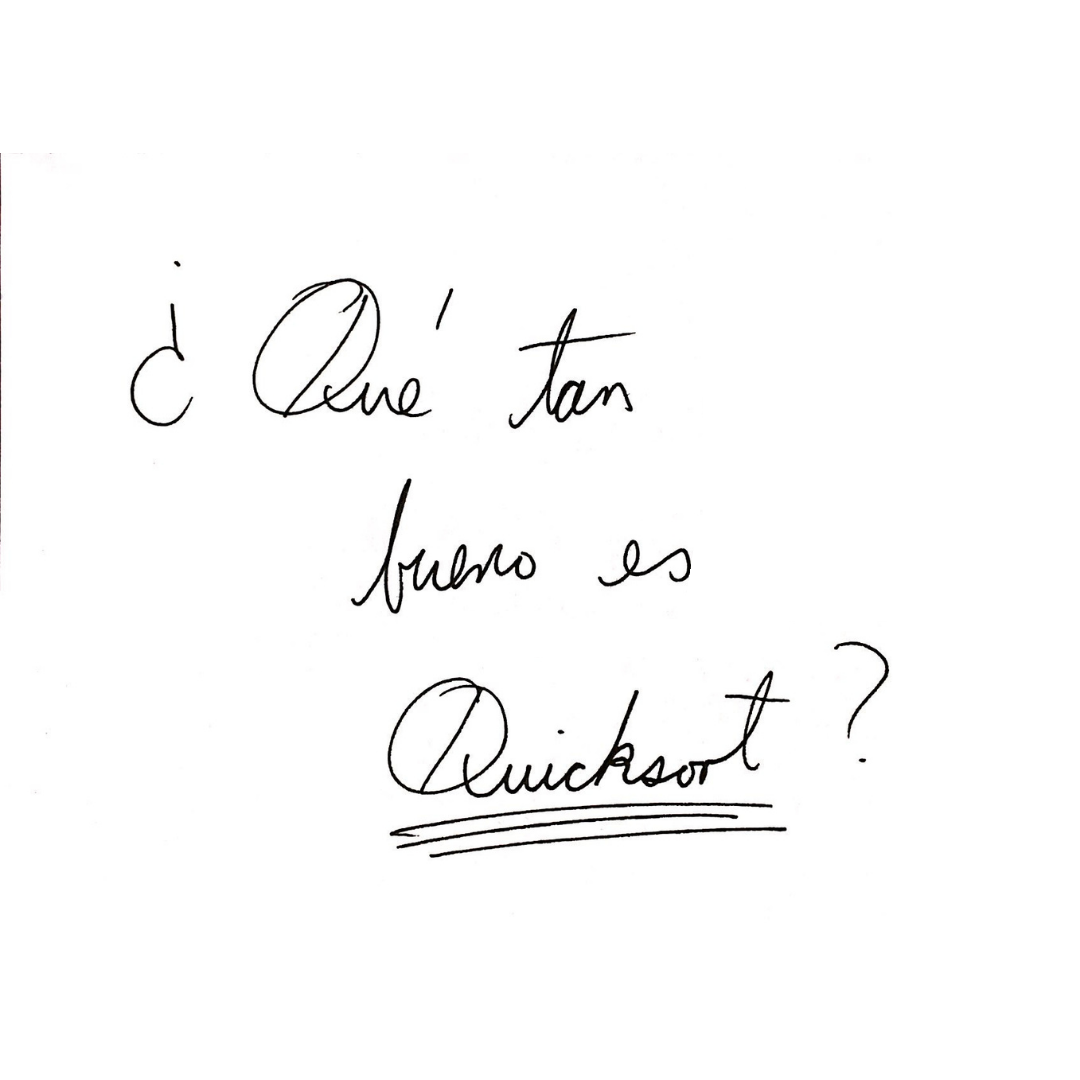 ¿Qué tan
bueno es
Quicksort?